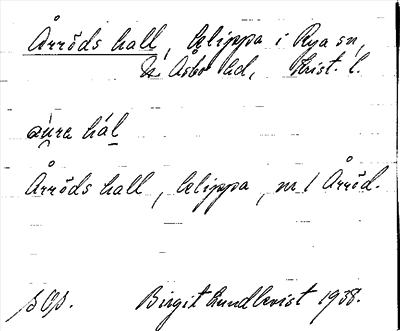 Årröds hall, klippa i Rya sn,
N Åsbo hd, Krist. l.
hál
Årröds hall, klippa, nr 1 Årröd.
Birgit Lundkvist 1938.